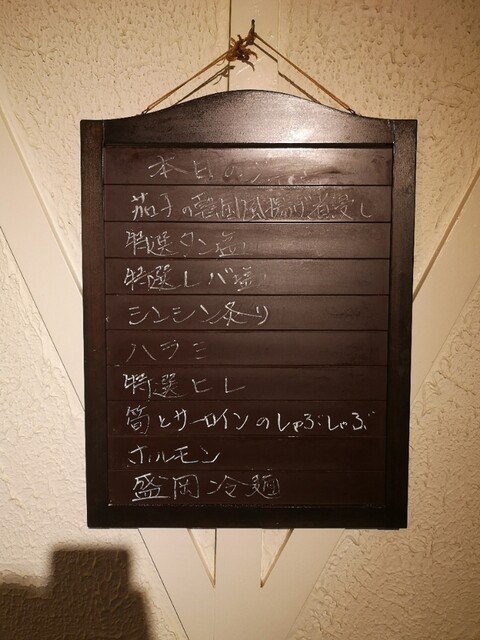 本日の
茄子の韓国風揚げ煮浸し
特選タン塩
特選レバ塩
シンシン炙り
ハラミ
特選ヒレ
筍とサーロインのしゃぶしゃぶ
ホルモン
盛岡冷麺